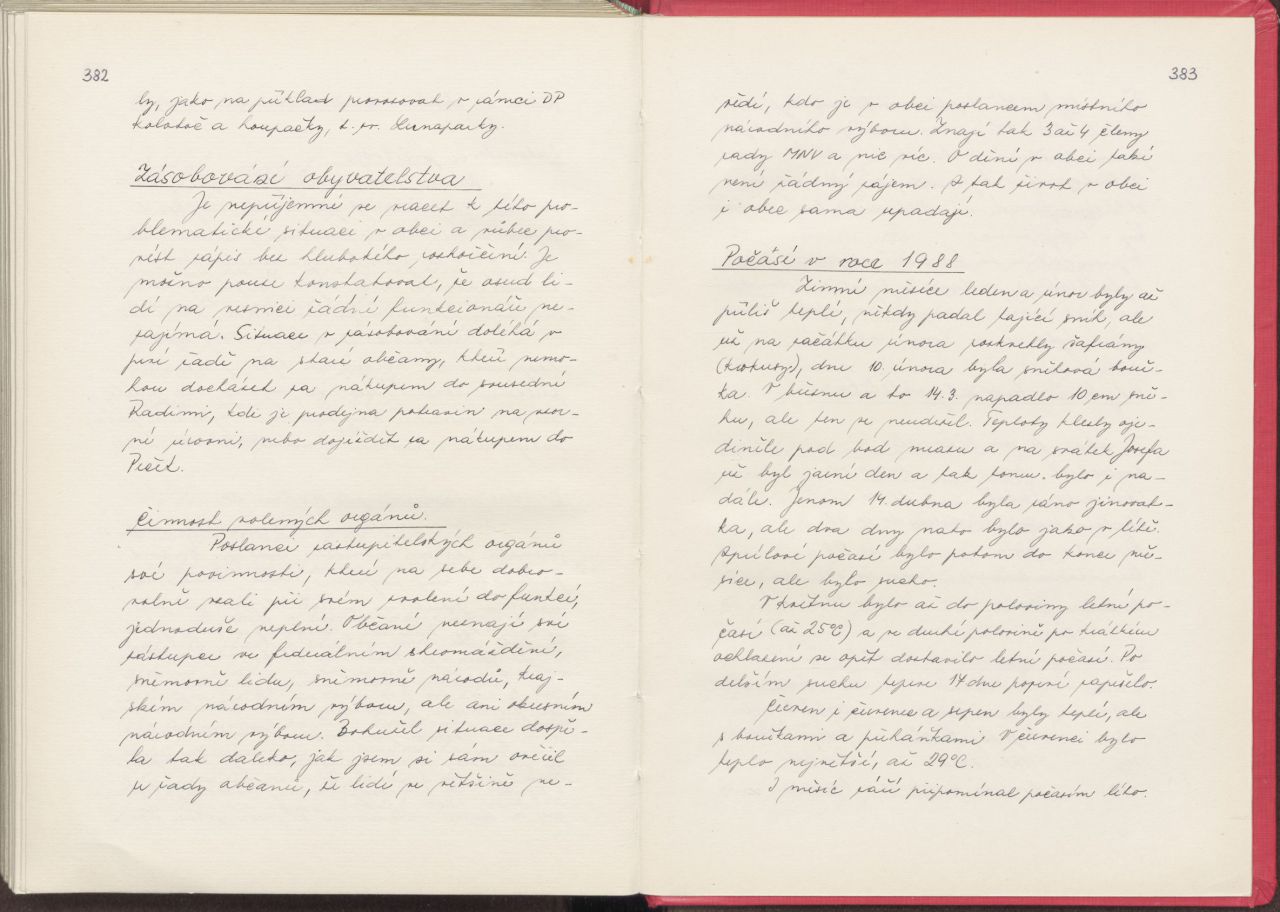 382
ly, jako na příklad provozovat v rámci DP
kolotoč a houpačky, t. zv. Lunaparky.
Zásobování obyvatelstva
Je nepříjemné se vracet k této pro-
blematické situaci v obci a vůbec pro-
vést zápis bez hlubokého rozhořčení. Je
možno pouze konstatovat, že osud li-
dí na vesnici žádné funkcionáře ne-
zajímá. Situace v zásobování doléhá v
prvé řadě na staré občany, kteří nemo-
hou docházet za nákupem do sousední
Radimi, kde je prodejna potravin na vzor-
né úrovni, nebo dojíždět za nákupem do
Peček.
Činnost volených orgánů.
Poslanci zastupitelských orgánů
své povinnosti, které na sebe dobro-
volně vzali při svém zvolení do funkcí,
jednoduše neplní. Občané neznají své
zástupce ve federálním shromáždění,
sněmovně lidu, sněmovně národů, kraj-
ském národním výboru, ale ani okresním
národním výboru. Bohužel situace dospě-
la tak daleko, jak jsem si sám ověřil
u řady občanů, že lidé ve většině ne-
383
vědí, kdo je v obci poslancem místního
národního výboru. Znají tak 3 až 4 členy
rady MNV a nic víc. O dění v obci také
není žádný zájem. A tak život v obci
i obec sama upadají.
Počasí v roce 1988
Zimní měsíce leden a únor byly až
příliš teplé, někdy padal tající sníh, ale
už na začátku února rozkvetly šafrány
(krokusy), dne 10. února byla sněhová bouř-
ka. V březnu a to 14.3. napadlo 10 cm sně-
hu, ale ten se neudržel. Teploty klesly oje-
diněle pod bod mrazu a na svátek Josefa
už byl jarní den a tak tomu bylo i na-
dále. Jenom 14. dubna byla ráno jinovat-
ka, ale dva dny nato bylo jako v létě.
Aprílové počasí bylo potom do konce mě-
síce, ale bylo sucho.
V květnu bylo až do poloviny letní po-
časí (až 25°C) a ve druhé polovině po krátkém
ochlazení se opět dostavilo letní počasí. Po
delším suchu teprve 17 dne poprvé zapršelo.
Červen i červenec a srpen byly teplé, ale
s bouřkami a přeháňkami. V červenci bylo
teplo největší, až 29°C.
I měsíc září připomínal počasím léto.